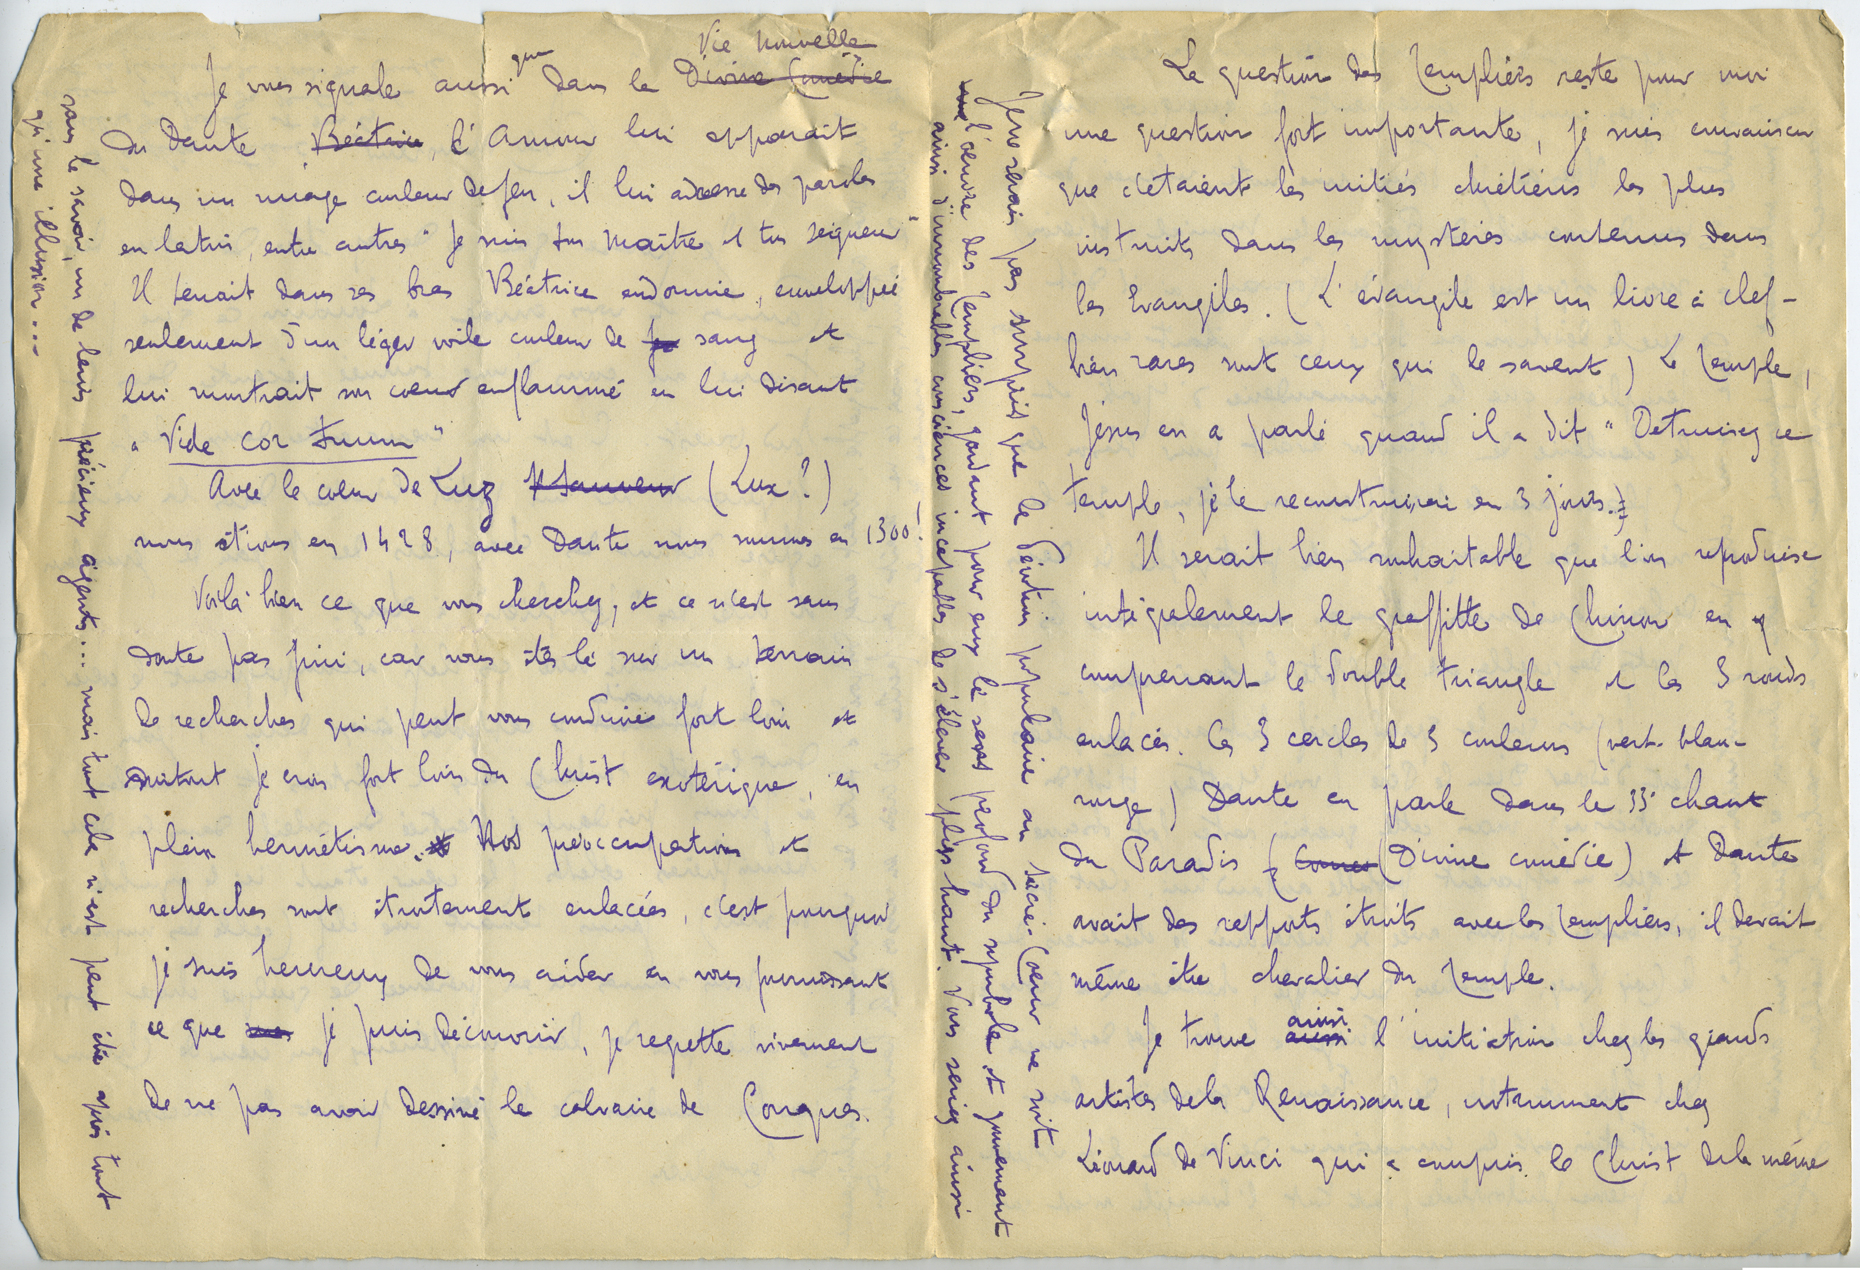 Vie Nouvelle
Je vous signale aussi que dans la Divine Comédie
du Dante Béatrice, l'Amour lui apparait
dans un nuage couleur de feu, il lui adresse des paroles
en latin, entre autres " Je suis ton Maître et ton Seigneur "
Il tenait dans ses bras Béatrice endormie, enveloppée
seulement d'un léger voile couleur de feu sang et
lui montrait son coeur enflammé en lui disant
" Vide cor tuum "
Avec le coeur de Luz (Lux ?)
nous étions en 1428, avec Dante nous sommes en 1300 !
Voilà bien ce que vous cherchez, et ce n'est sans
doute pas fini, car vous êtes là sur un terrain
de recherches qui peut vous conduire fort loin et
surtout je crois fort loin du Christ exotérique, en
plein hermétisme. Nos préoccupations et
recherches sont étroitement enlacées, c'est pourquoi
je suis heureux de vous aider en vous fournissant
ce que je puis découvrir, je regrette vivement
de ne pas avoir dessiné le calvaire de Conques.
Je ne serais pas surpris que la dévotion populaire au Sacré-Coeur ne soit
l'oeuvre des Templiers, gardant pour eux le sens profond du symbole et gouvernant
ainsi d'innombrables consciences incapables de s'élever plus haut. Vous seriez ainsi
sans le savoir, un de leurs précieux agents... mais tout cela n'est peut être après tout
qu'une illusion...
La question des Templiers reste pour moi
une question fort importante, je suis convaincu
que c'étaient les initiés chrétiens les plus
instruits dans les mystères contenus dans
les Evangiles. (L'évangile est un livre à clef -
bien rares sont ceux qui le savent) Le Temple,
Jésus en a parlé quand il a dit " Detruisez ce
temple, je le reconstruirai en 3 jours.
Il serait bien souhaitable que l'on reproduise
intégralement le graffitte de Chinon en y
comprenant le double triangle et les 3 ronds
enlacés. Ces 3 cercles de 3 couleurs (vert - blanc -
rouge) Dante en parle dans le 33e chant
du Paradis (Divine comédie) et Dante
avait des rapports étroits avec les Templiers, il devait
même être chevalier du Temple.
Je trouve aussi ainsi l'initiation chez les grands
artistes de la Renaissance, notamment chez
Léonard de Vinci qui a compris le Christ de la même